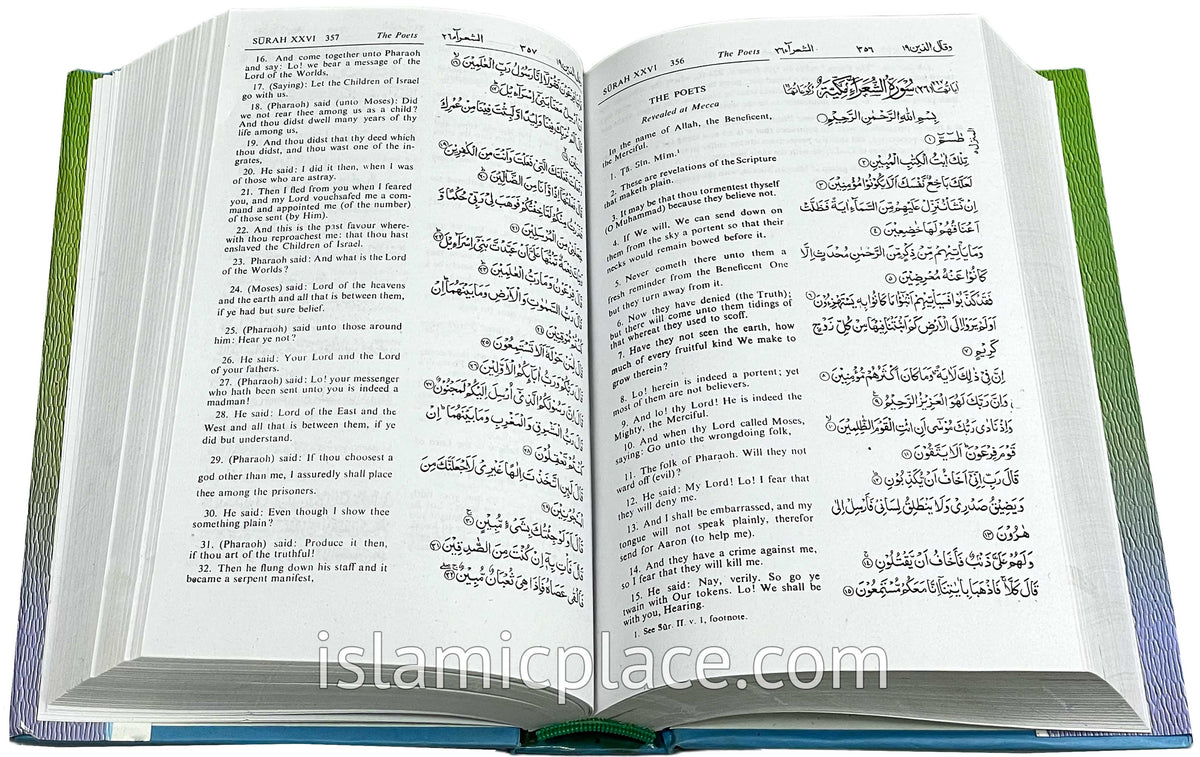 SŪRAH XXVI 356 The Poets الشعرآء ٢٦ ٣٥٦ وقال الذين ١٩
THE POETS
Revealed at Mecca
In the name of Allah, the Beneficent,
the Merciful.
1. Tā. Sīn. Mīm.¹
2. These are revelations of the Scripture
that maketh plain.
3. It may be that thou tormentest thyself
(O Muhammad) because they believe not.
4. If We will, We can send down on
them from the sky a portent so that their
necks would remain bowed before it.
5. Never cometh there unto them a
fresh reminder from the Beneficent One
but they turn away from it.
6. Now they have denied (the Truth);
but there will come unto them tidings of
that whereat they used to scoff.
7. Have they not seen the earth, how
much of every fruitful kind We make to
grow therein?
8. Lo! herein is indeed a portent; yet
most of them are not believers.
9. And lo! thy Lord! He is indeed the
Mighty, the Merciful.
10. And when thy Lord called Moses,
saying: Go unto the wrongdoing folk,
11. The folk of Pharaoh. Will they not
ward off (evil)?
12. He said: My Lord! Lo! I fear that
they will deny me.
13. And I shall be embarrassed, and my
tongue will not speak plainly, therefor
send for Aaron (to help me).
14. And they have a crime against me,
so I fear that they will kill me.
15. He said: Nay, verily. So go ye
twain with Our tokens. Lo! We shall be
with you, Hearing.
1. See Sûr. II. v. 1, footnote.
سُوْرَةُ الشُّعَرَآءِ مَكِّيَّةٌ
بِسْمِ اللّٰهِ الرَّحْمٰنِ الرَّحِيْمِ
طٰسٓمّٓ ۝١
تِلْكَ اٰيٰتُ الْكِتٰبِ الْمُبِيْنِ ۝٢
لَعَلَّكَ بَاخِعٌ نَّفْسَكَ اَلَّا يَكُوْنُوْا مُؤْمِنِيْنَ ۝٣
اِنْ نَّشَاْ نُنَزِّلْ عَلَيْهِمْ مِّنَ السَّمَآءِ اٰيَةً فَظَلَّتْ
اَعْنَاقُهُمْ لَهَا خٰضِعِيْنَ ۝٤
وَمَا يَاْتِيْهِمْ مِّنْ ذِكْرٍ مِّنَ الرَّحْمٰنِ مُحْدَثٍ اِلَّا
كَانُوْا عَنْهُ مُعْرِضِيْنَ ۝٥
فَقَدْ كَذَّبُوْا فَسَيَاْتِيْهِمْ اَنْۢبٰٓؤُا مَا كَانُوْا بِهٖ يَسْتَهْزِءُوْنَ ۝٦
اَوَلَمْ يَرَوْا اِلَى الْاَرْضِ كَمْ اَنْۢبَتْنَا فِيْهَا مِنْ كُلِّ زَوْجٍ
كَرِيْمٍ ۝٧
اِنَّ فِيْ ذٰلِكَ لَاٰيَةً وَمَا كَانَ اَكْثَرُهُمْ مُّؤْمِنِيْنَ ۝٨
وَاِنَّ رَبَّكَ لَهُوَ الْعَزِيْزُ الرَّحِيْمُ ۝٩
وَاِذْ نَادٰى رَبُّكَ مُوْسٰٓى اَنِ ائْتِ الْقَوْمَ الظّٰلِمِيْنَ ۝١٠
قَوْمَ فِرْعَوْنَ اَلَا يَتَّقُوْنَ ۝١١
قَالَ رَبِّ اِنِّيْٓ اَخَافُ اَنْ يُّكَذِّبُوْنِ ۝١٢
وَيَضِيْقُ صَدْرِيْ وَلَا يَنْطَلِقُ لِسَانِيْ فَاَرْسِلْ اِلٰى
هٰرُوْنَ ۝١٣
وَلَهُمْ عَلَيَّ ذَنْۢبٌ فَاَخَافُ اَنْ يَّقْتُلُوْنِ ۝١٤
قَالَ كَلَّا فَاذْهَبَا بِاٰيٰتِنَآ اِنَّا مَعَكُمْ مُّسْتَمِعُوْنَ ۝١٥
SŪRAH XXVI 357 The Poets الشعرآء ٢٦ ٣٥٧
16. And come together unto Pharaoh
and say: Lo! we bear a message of the
Lord of the Worlds,
17. (Saying): Let the Children of Israel
go with us.
18. (Pharaoh) said (unto Moses): Did
we not rear thee among us as a child?
And thou didst dwell many years of thy
life among us,
19. And thou didst that thy deed which
thou didst, and thou wast one of the in-
grates,
20. He said: I did it then, when I was
of those who are astray.
21. Then I fled from you when I feared
you, and my Lord vouchsafed me a com-
mand and appointed me (of the number)
of those sent (by Him).
22. And this is the past favour where-
with thou reproachest me: that thou hast
enslaved the Children of Israel.
23. Pharaoh said: And what is the Lord
of the Worlds?
24. (Moses) said: Lord of the heavens
and the earth and all that is between them,
if ye had but sure belief.
25. (Pharaoh) said unto those around
him: Hear ye not?
26. He said: Your Lord and the Lord
of your fathers.
27. (Pharaoh) said: Lo! your messenger
who hath been sent unto you is indeed a
madman!
28. He said: Lord of the East and the
West and all that is between them, if ye
did but understand.
29. (Pharaoh) said: If thou choosest a
god other than me, I assuredly shall place
thee among the prisoners.
30. He said: Even though I show thee
something plain?
31. (Pharaoh) said: Produce it then,
if thou art of the truthful!
32. Then he flung down his staff and it
became a serpent manifest,
فِرْعَوْنَ فَقُوْلَآ اِنَّا رَسُوْلُ رَبِّ الْعٰلَمِيْنَ ۝١٦
اَنْ اَرْسِلْ مَعَنَا بَنِيْٓ اِسْرَآءِيْلَ ۝١٧
قَالَ اَلَمْ نُرَبِّكَ فِيْنَا وَلِيْدًا وَّلَبِثْتَ فِيْنَا مِنْ عُمُرِكَ
سِنِيْنَ ۝١٨
وَفَعَلْتَ فَعْلَتَكَ الَّتِيْ فَعَلْتَ وَاَنْتَ مِنَ الْكٰفِرِيْنَ ۝١٩
قَالَ فَعَلْتُهَآ اِذًا وَّاَنَا مِنَ الضَّآلِّيْنَ ۝٢٠
فَفَرَرْتُ مِنْكُمْ لَمَّا خِفْتُكُمْ فَوَهَبَ لِيْ رَبِّيْ حُكْمًا وَّ
جَعَلَنِيْ مِنَ الْمُرْسَلِيْنَ ۝٢١
وَتِلْكَ نِعْمَةٌ تَمُنُّهَا عَلَيَّ اَنْ عَبَّدْتَّ بَنِيْٓ اِسْرَآءِيْلَ ۝٢٢
قَالَ فِرْعَوْنُ وَمَا رَبُّ الْعٰلَمِيْنَ ۝٢٣
قَالَ رَبُّ السَّمٰوٰتِ وَالْاَرْضِ وَمَا بَيْنَهُمَا اِنْ
كُنْتُمْ مُّوْقِنِيْنَ ۝٢٤
قَالَ لِمَنْ حَوْلَهٗٓ اَلَا تَسْتَمِعُوْنَ ۝٢٥
قَالَ رَبُّكُمْ وَرَبُّ اٰبَآئِكُمُ الْاَوَّلِيْنَ ۝٢٦
قَالَ اِنَّ رَسُوْلَكُمُ الَّذِيْٓ اُرْسِلَ اِلَيْكُمْ لَمَجْنُوْنٌ ۝٢٧
قَالَ رَبُّ الْمَشْرِقِ وَالْمَغْرِبِ وَمَا بَيْنَهُمَا اِنْ
كُنْتُمْ تَعْقِلُوْنَ ۝٢٨
قَالَ لَئِنِ اتَّخَذْتَ اِلٰهًا غَيْرِيْ لَاَجْعَلَنَّكَ مِنَ
الْمَسْجُوْنِيْنَ ۝٢٩
قَالَ اَوَلَوْ جِئْتُكَ بِشَيْءٍ مُّبِيْنٍ ۝٣٠
قَالَ فَاْتِ بِهٖٓ اِنْ كُنْتَ مِنَ الصّٰدِقِيْنَ ۝٣١
فَاَلْقٰى عَصَاهُ فَاِذَا هِيَ ثُعْبَانٌ مُّبِيْنٌ ۝٣٢
islamicplace.com